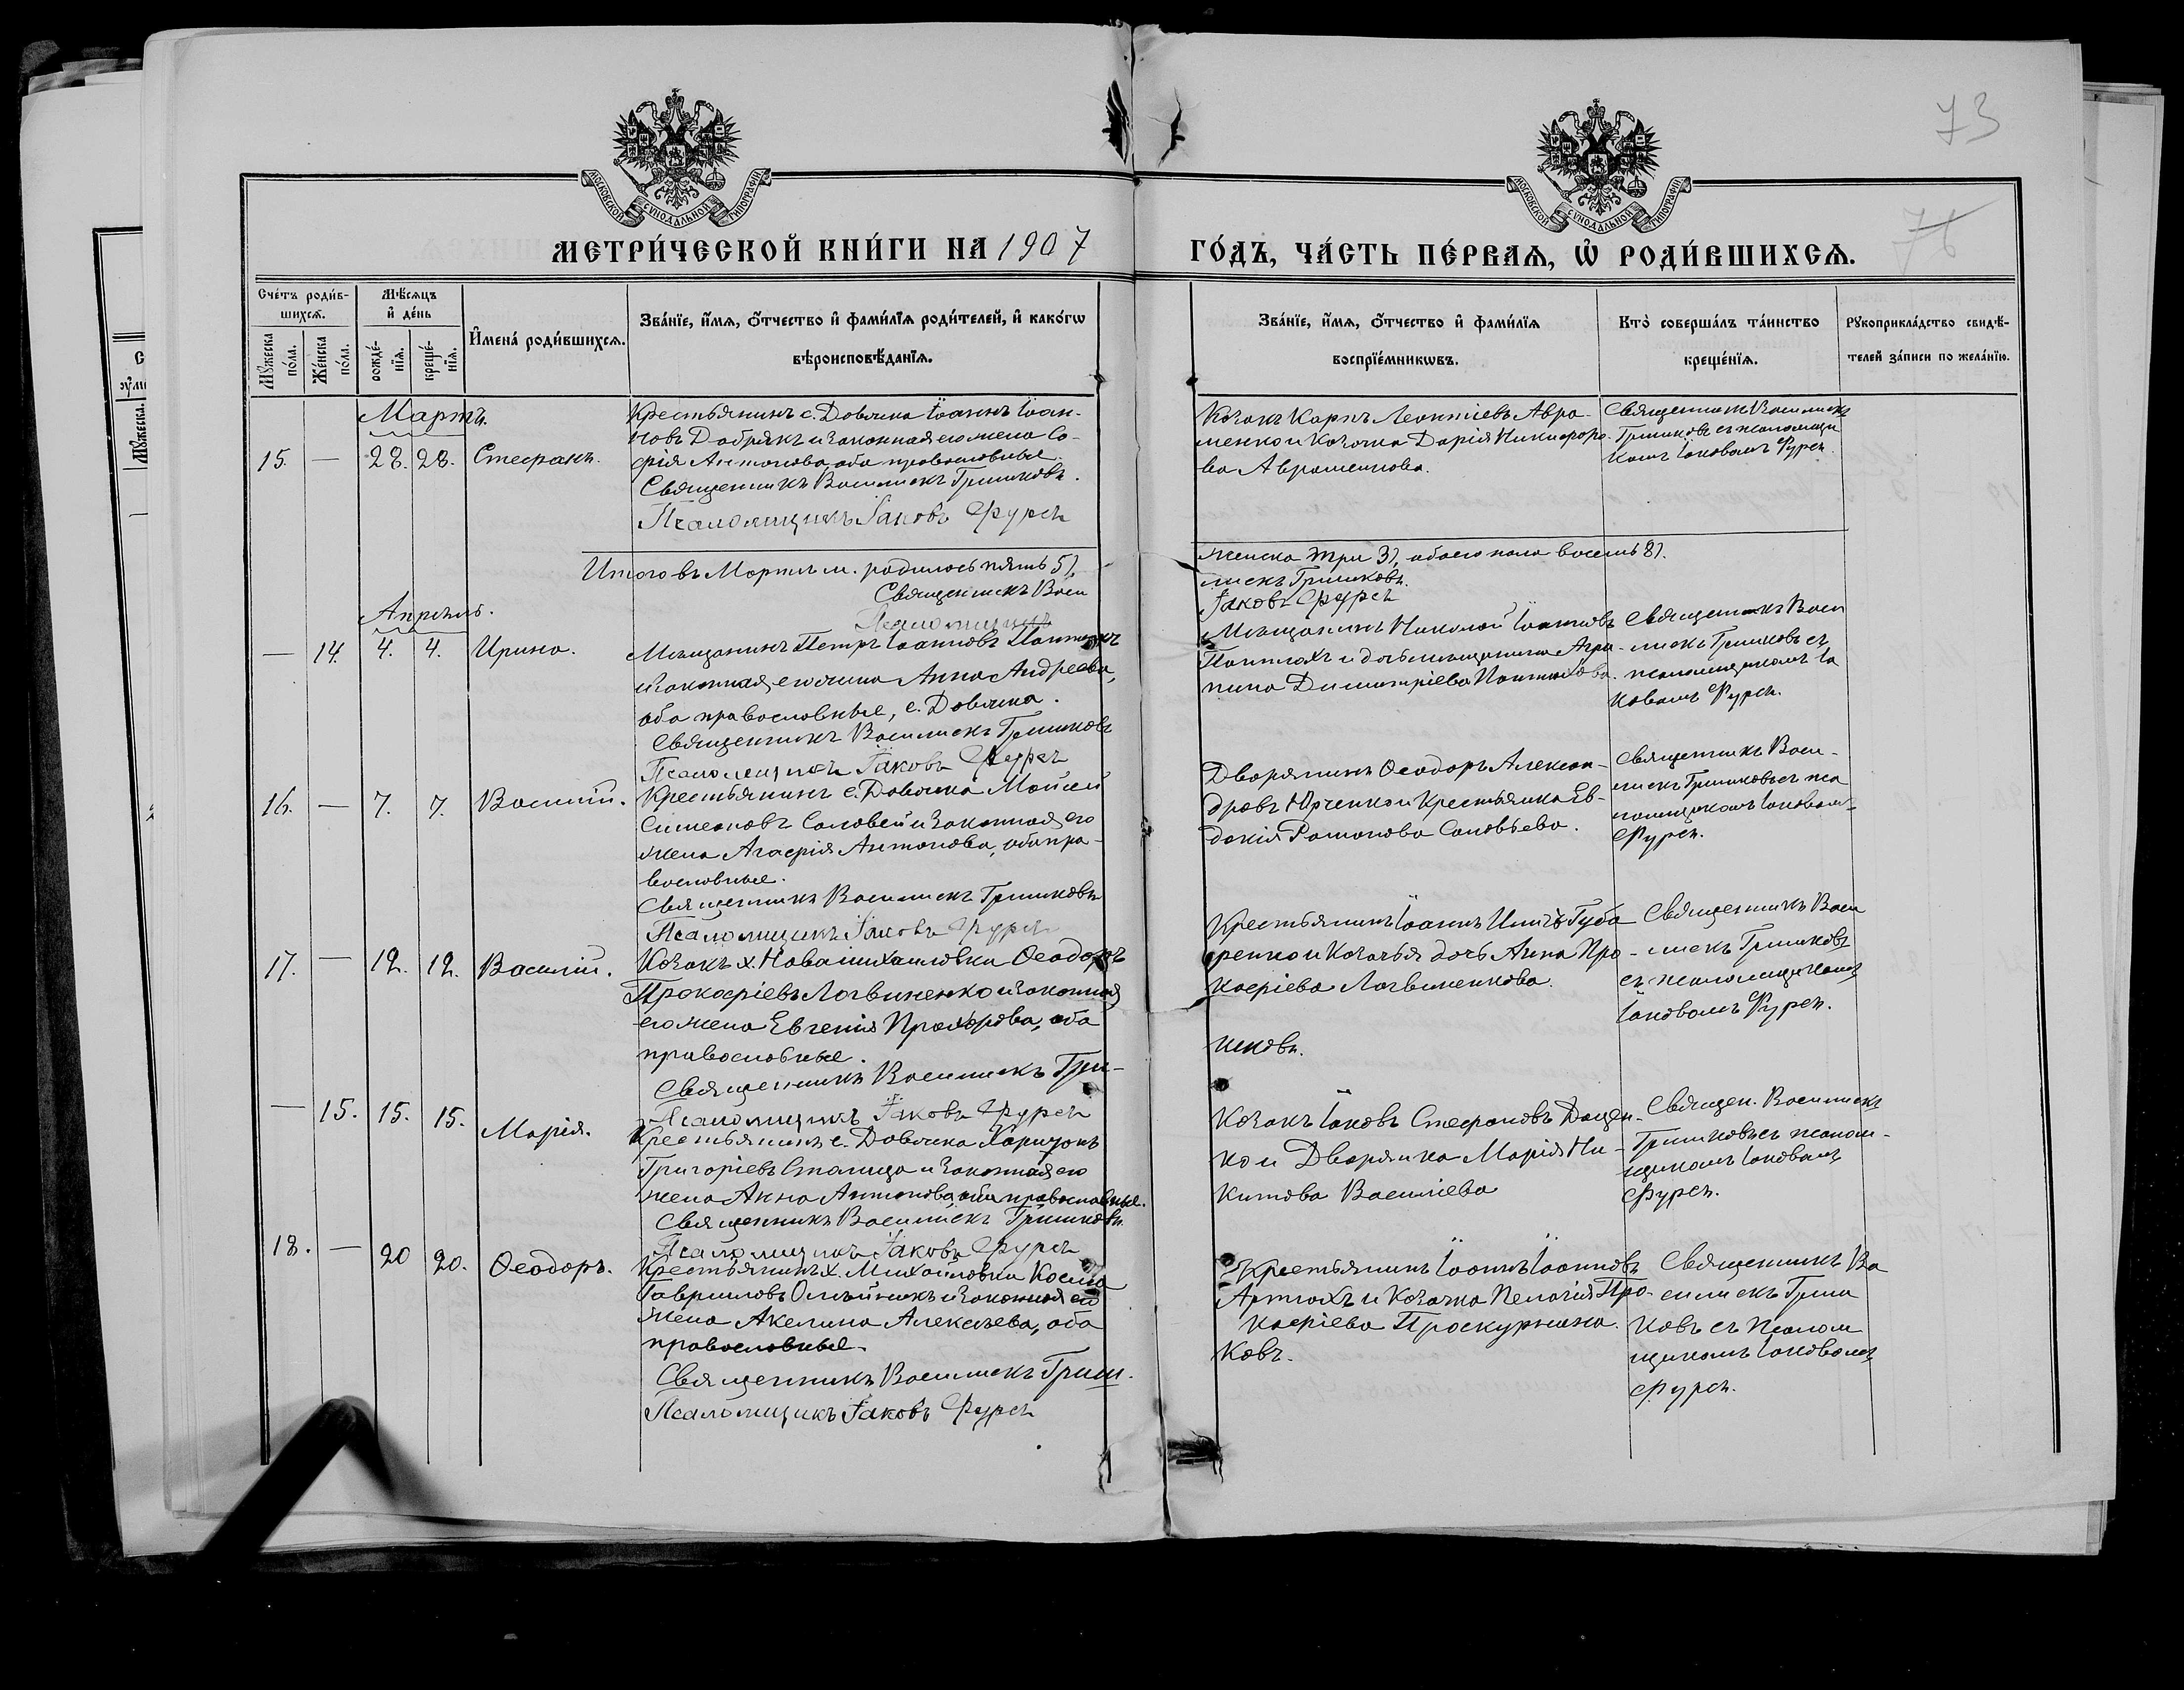 73
76
МОСКОВСКОЙ СѴНОДАЛЬНОЙ ТИПОГРАФІИ
МОСКОВСКОЙ СѴНОДАЛЬНОЙ ТИПОГРАФІИ
МЕТРИ́ЧЕСКОЙ КНИ́ГИ НА 1907
ГО́ДЪ, ЧА́СТЬ ПЕ́РВАЯ, Ѡ҆ РОДИ́ВШИХСЯ.
Сче́тъ роди́в-
шихся.
Мѣ́сяцъ
и҆ де́нь
Мꙋ́жеска по́ла.
Же́нска по́ла.
рожде́-
нїя.
креще́-
нїя.
И҆мена̀ роди́вшихся.
Зва́нїе, и҆́мя, ѻ҆́тчество и҆ фами́лїя роди́телей, и҆ како́гѡ
вѣроисповѣ́данїя.
Зва́нїе, и҆́мя, ѻ҆́тчество и҆ фами́лїя
воспрїе́мникѡвъ.
Кто̀ соверша́лъ та́инство
креще́нїя.
Рꙋкоприкла́дство свидѣ́-
телей за́писи по жела́нїю.
Мартъ.
15. — 28. 28. Стефанъ.
Крестьянинъ с. Довжика Іоаннъ Іоан-
новъ Добрякъ и законная его жена Со-
фія Антонова, оба православные.
Священникъ Василискъ Гришковъ.
Псаломщикъ Іаковъ Фурсъ
Козакъ Карпъ Леонтіевъ Авра-
менко и Козачка Дарія Никифоро-
ва Авраменкова.
Священникъ Василискъ
Гришковъ съ псаломщи
комъ Іаковомъ Фурсъ.
Итого въ Мартѣ м. родилось пять 5),
женска три 3), обоего пола восемь 8).
Священникъ Васи
лискъ Гришковъ.
Псаломщикъ
Іаковъ Фурсъ
Апрѣль.
— 14. 4. 4. Ирина.
Мѣщанинъ Петръ Іоанновъ
и законная его жена Анна Андреева,
оба православные, с. Довжика.
Священникъ Василискъ Гришковъ
Псаломщикъ Іаковъ Фурсъ
Мѣщанинъ Николай Іоанновъ
и дочь мѣщанина Агри-
пина Димитріева
Священникъ Васи
лискъ Гришковъ съ
псаломщикомъ Іа
ковомъ Фурсъ.
16. — 7. 7. Василій.
Крестьянинъ с. Довжика Мойсей
Симеоновъ Соловей и законная его
жена Агафія Антонова, оба пра-
вославные.
Священникъ Василискъ Гришковъ
Псаломщикъ Іаковъ Фурсъ
Дворянинъ Ѳеодоръ Алексан-
дровъ Юрченко и Крестьянка Ев-
докія Романова Соловьева.
Священникъ Васи-
лискъ Гришковъ съ пса
ломщикомъ Іаковомъ
Фурсъ.
17. — 12. 12. Василій.
Козакъ х. Новамихайловки Ѳеодоръ
Прокофіевъ Логвиненко и законная
его жена Евгенія Прохорова, оба
православные.
Священникъ Василискъ Гри-
шковъ.
Псаломщикъ Іаковъ Фурсъ
Крестьянинъ Іоаннъ Ильичъ Губа
ренко и Козачья дочь Анна Про-
кофіева Логвиненкова.
Священникъ Васи
лискъ Гришковъ
съ псаломщикомъ
Іаковомъ Фурсъ.
— 15. 15. 15. Марія.
Крестьянинъ с. Довжика Харитонъ
Григоріевъ Сталица и законная его
жена Анна Антонова, оба православные.
Священникъ Василискъ Гришковъ
Псаломщикъ Іаковъ Фурсъ
Козакъ Іаковъ Стефановъ Доцен-
ко и Дворянка Марія Ни-
китова Василіева
Священ. Василискъ
Гришковъ съ псалом-
щикомъ Іаковомъ
Фурсъ.
18. — 20 20. Ѳеодоръ.
Крестьянинъ х. Михайловки Косма
Гавриловъ Олѣйникъ и законная его
жена Акелина Алексѣева, оба
православные.
Священникъ Василискъ Гриш.
ковъ.
Псаломщикъ Іаковъ Фурсъ
Крестьянинъ Іоаннъ Іоанновъ
Артюхъ и Козачка Пелагія Про-
кофіева Проскурнина.
Священникъ Ва
силискъ Гриш
ковъ съ псалом
щикомъ Іаковомъ
Фурсъ.